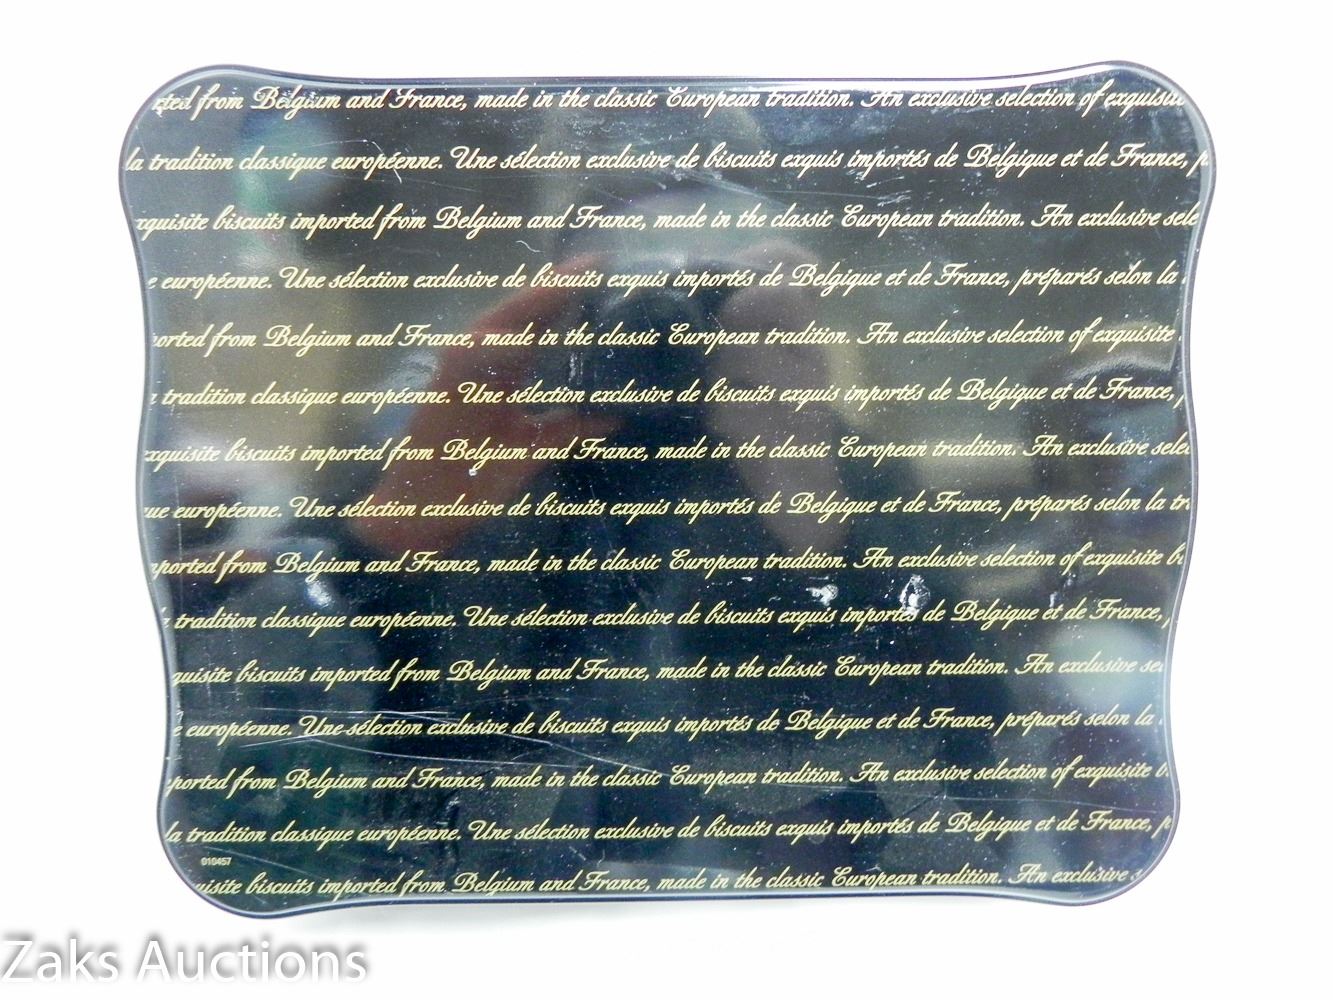 rted from Belgium and France, made in the classic European tradition. An exclusive selection of exquisite
la tradition classique européenne. Une sélection exclusive de biscuits exquis importés de Belgique et de France, p
xquisite biscuits imported from Belgium and France, made in the classic European tradition. An exclusive sele
e européenne. Une sélection exclusive de biscuits exquis importés de Belgique et de France, préparés selon la
ported from Belgium and France, made in the classic European tradition. An exclusive selection of exquisite
a tradition classique européenne. Une sélection exclusive de biscuits exquis importés de Belgique et de France,
xquisite biscuits imported from Belgium and France, made in the classic European tradition. An exclusive selec
ue européenne. Une sélection exclusive de biscuits exquis importés de Belgique et de France, préparés selon la tr
ported from Belgium and France, made in the classic European tradition. An exclusive selection of exquisite bi
a tradition classique européenne. Une sélection exclusive de biscuits exquis importés de Belgique et de France,
quisite biscuits imported from Belgium and France, made in the classic European tradition. An exclusive sel
e européenne. Une sélection exclusive de biscuits exquis importés de Belgique et de France, préparés selon la
ported from Belgium and France, made in the classic European tradition. An exclusive selection of exquisite b
la tradition classique européenne. Une sélection exclusive de biscuits exquis importés de Belgique et de France, p
010457
uisite biscuits imported from Belgium and France, made in the classic European tradition. An exclusive s
Zaks Auctions